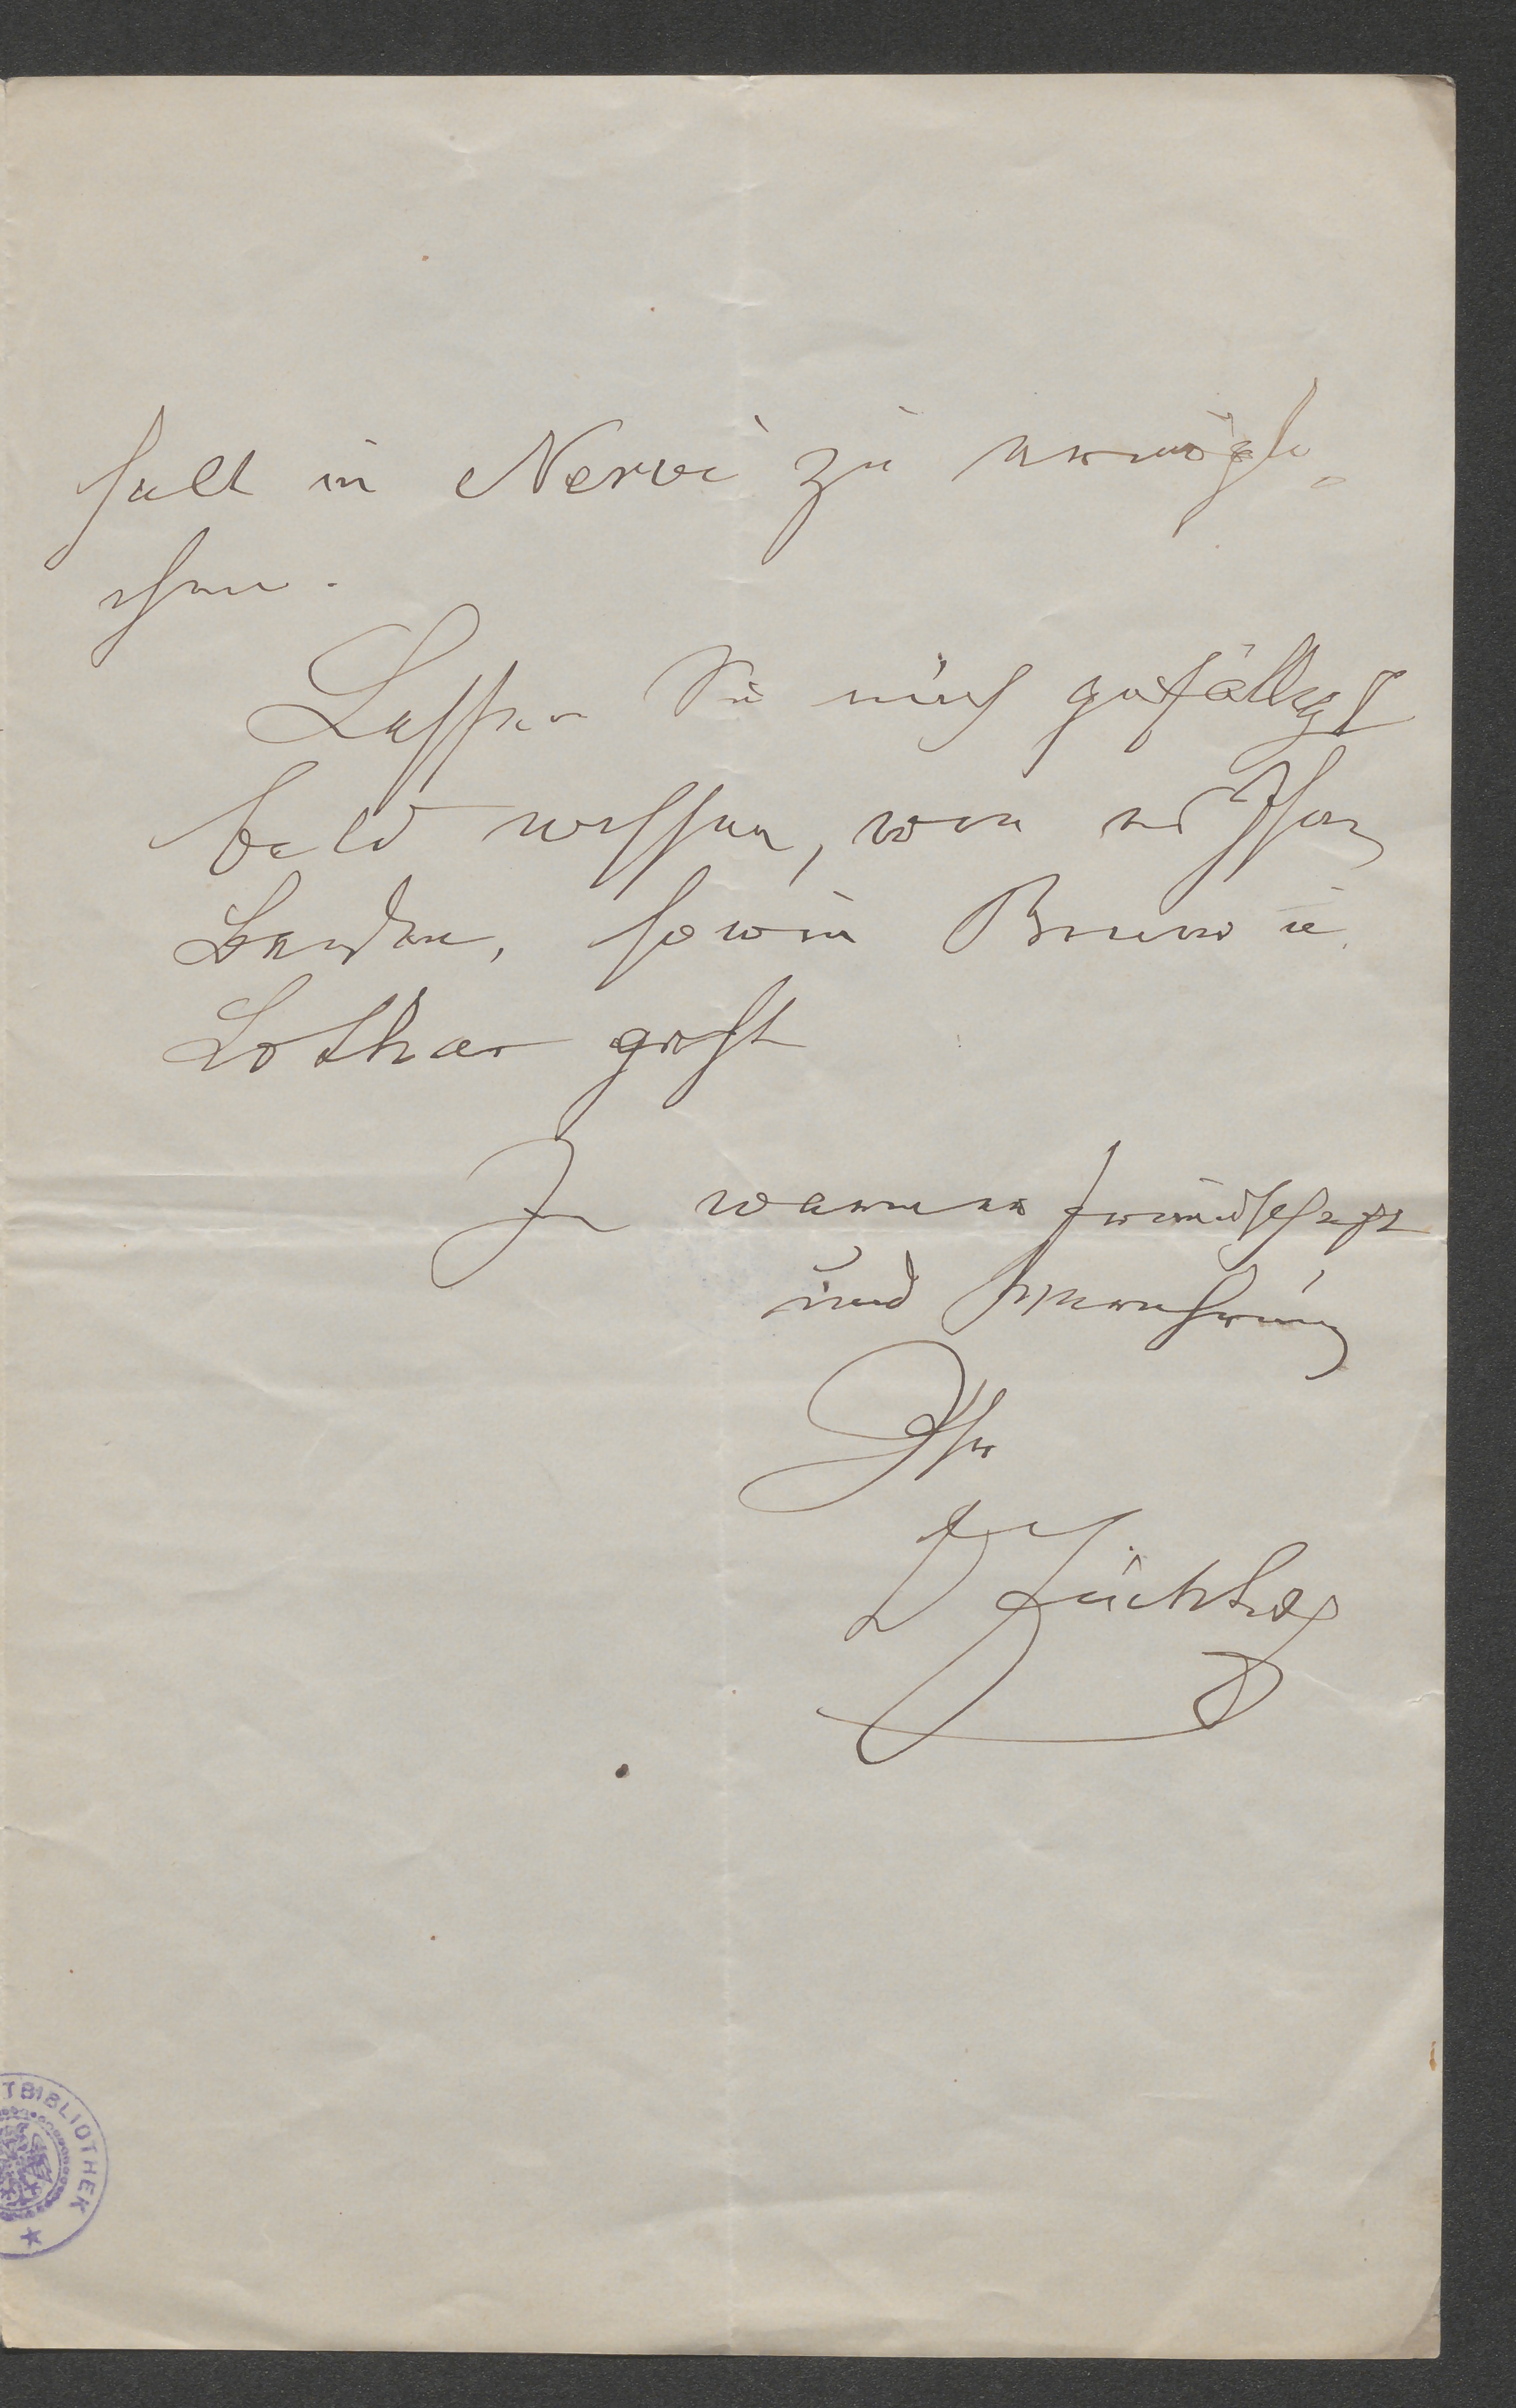 halt in Nervi zu ermögli-
chen.
Lassen Sie mich gefälligst
bald wissen, wie es Ihnen
Beiden, sowie Bruno u.
Lothar geht
In warmer Freundschaft
und Verehrung
Ihr
TBIBLIOTHEK